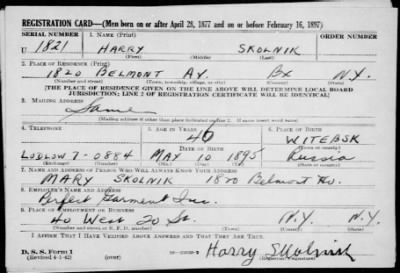 REGISTRATION CARD—(Men born on or after April 28, 1877 and on or before February 16, 1897)
SERIAL NUMBER 1. NAME (Print) ORDER NUMBER
U 1821 HARRY SKOLNIK
(First) (Middle) (Last)
2. PLACE OF RESIDENCE (Print)
1820 BELMONT AV. BX N.Y.
(Number and street) (Town, township, village, or city) (County) (State)
[THE PLACE OF RESIDENCE GIVEN ON THE LINE ABOVE WILL DETERMINE LOCAL BOARD
JURISDICTION; LINE 2 OF REGISTRATION CERTIFICATE WILL BE IDENTICAL]
3. MAILING ADDRESS
Same
[Mailing address if other than place indicated on line 2. If same insert word same]
4. TELEPHONE 5. AGE IN YEARS 6. PLACE OF BIRTH
46 WITEBSK
DATE OF BIRTH (Town or county)
LUDLOW 7-0884 MAY 10 1895 Russia
(Exchange) (Number) (Mo.) (Day) (Yr.) (State or country)
7. NAME AND ADDRESS OF PERSON WHO WILL ALWAYS KNOW YOUR ADDRESS
MARY SKOLNIK 1820 Belmont Av.
8. EMPLOYER'S NAME AND ADDRESS
Perfect Garment Inc.
9. PLACE OF EMPLOYMENT OR BUSINESS
40 West 20 St. N.Y. N.Y.
(Number and street or R. F. D. number) (Town) (County) (State)
I AFFIRM THAT I HAVE VERIFIED ABOVE ANSWERS AND THAT THEY ARE TRUE.
D. S. S. Form 1
(Revised 4-1-42) (over) Harry Skolnik